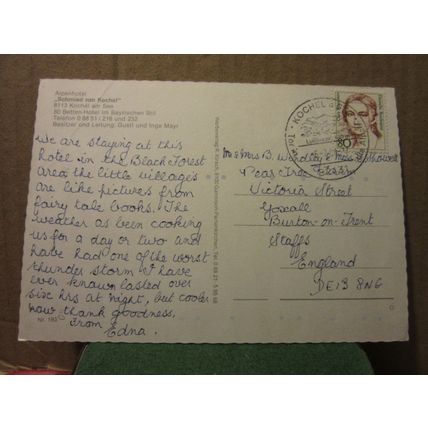 Alpenhotel
„Schmied von Kochel"
8113 Kochel am See
80 Betten-Hotel im Bayrischen Stil
Telefon 0 88 51 / 216 und 232
Besitzer und Leitung: Gustl und Inge Mayr
We are staying at this
hotel in the Black Forest
area the little villages
are like pictures from
fairy tale books. The
weather as been cooking
us for a day or two and
have had one of the worst
thunder storm I have
ever known lasted over
six hrs at night, but cooler
now thank goodness,
from
Edna.
Nr. 183
KOCHEL a
80
Mrs B.
Peas Tree
Victoria Street
Yoxall
Burton-on-Trent
Staffs
England
DE13 8NG